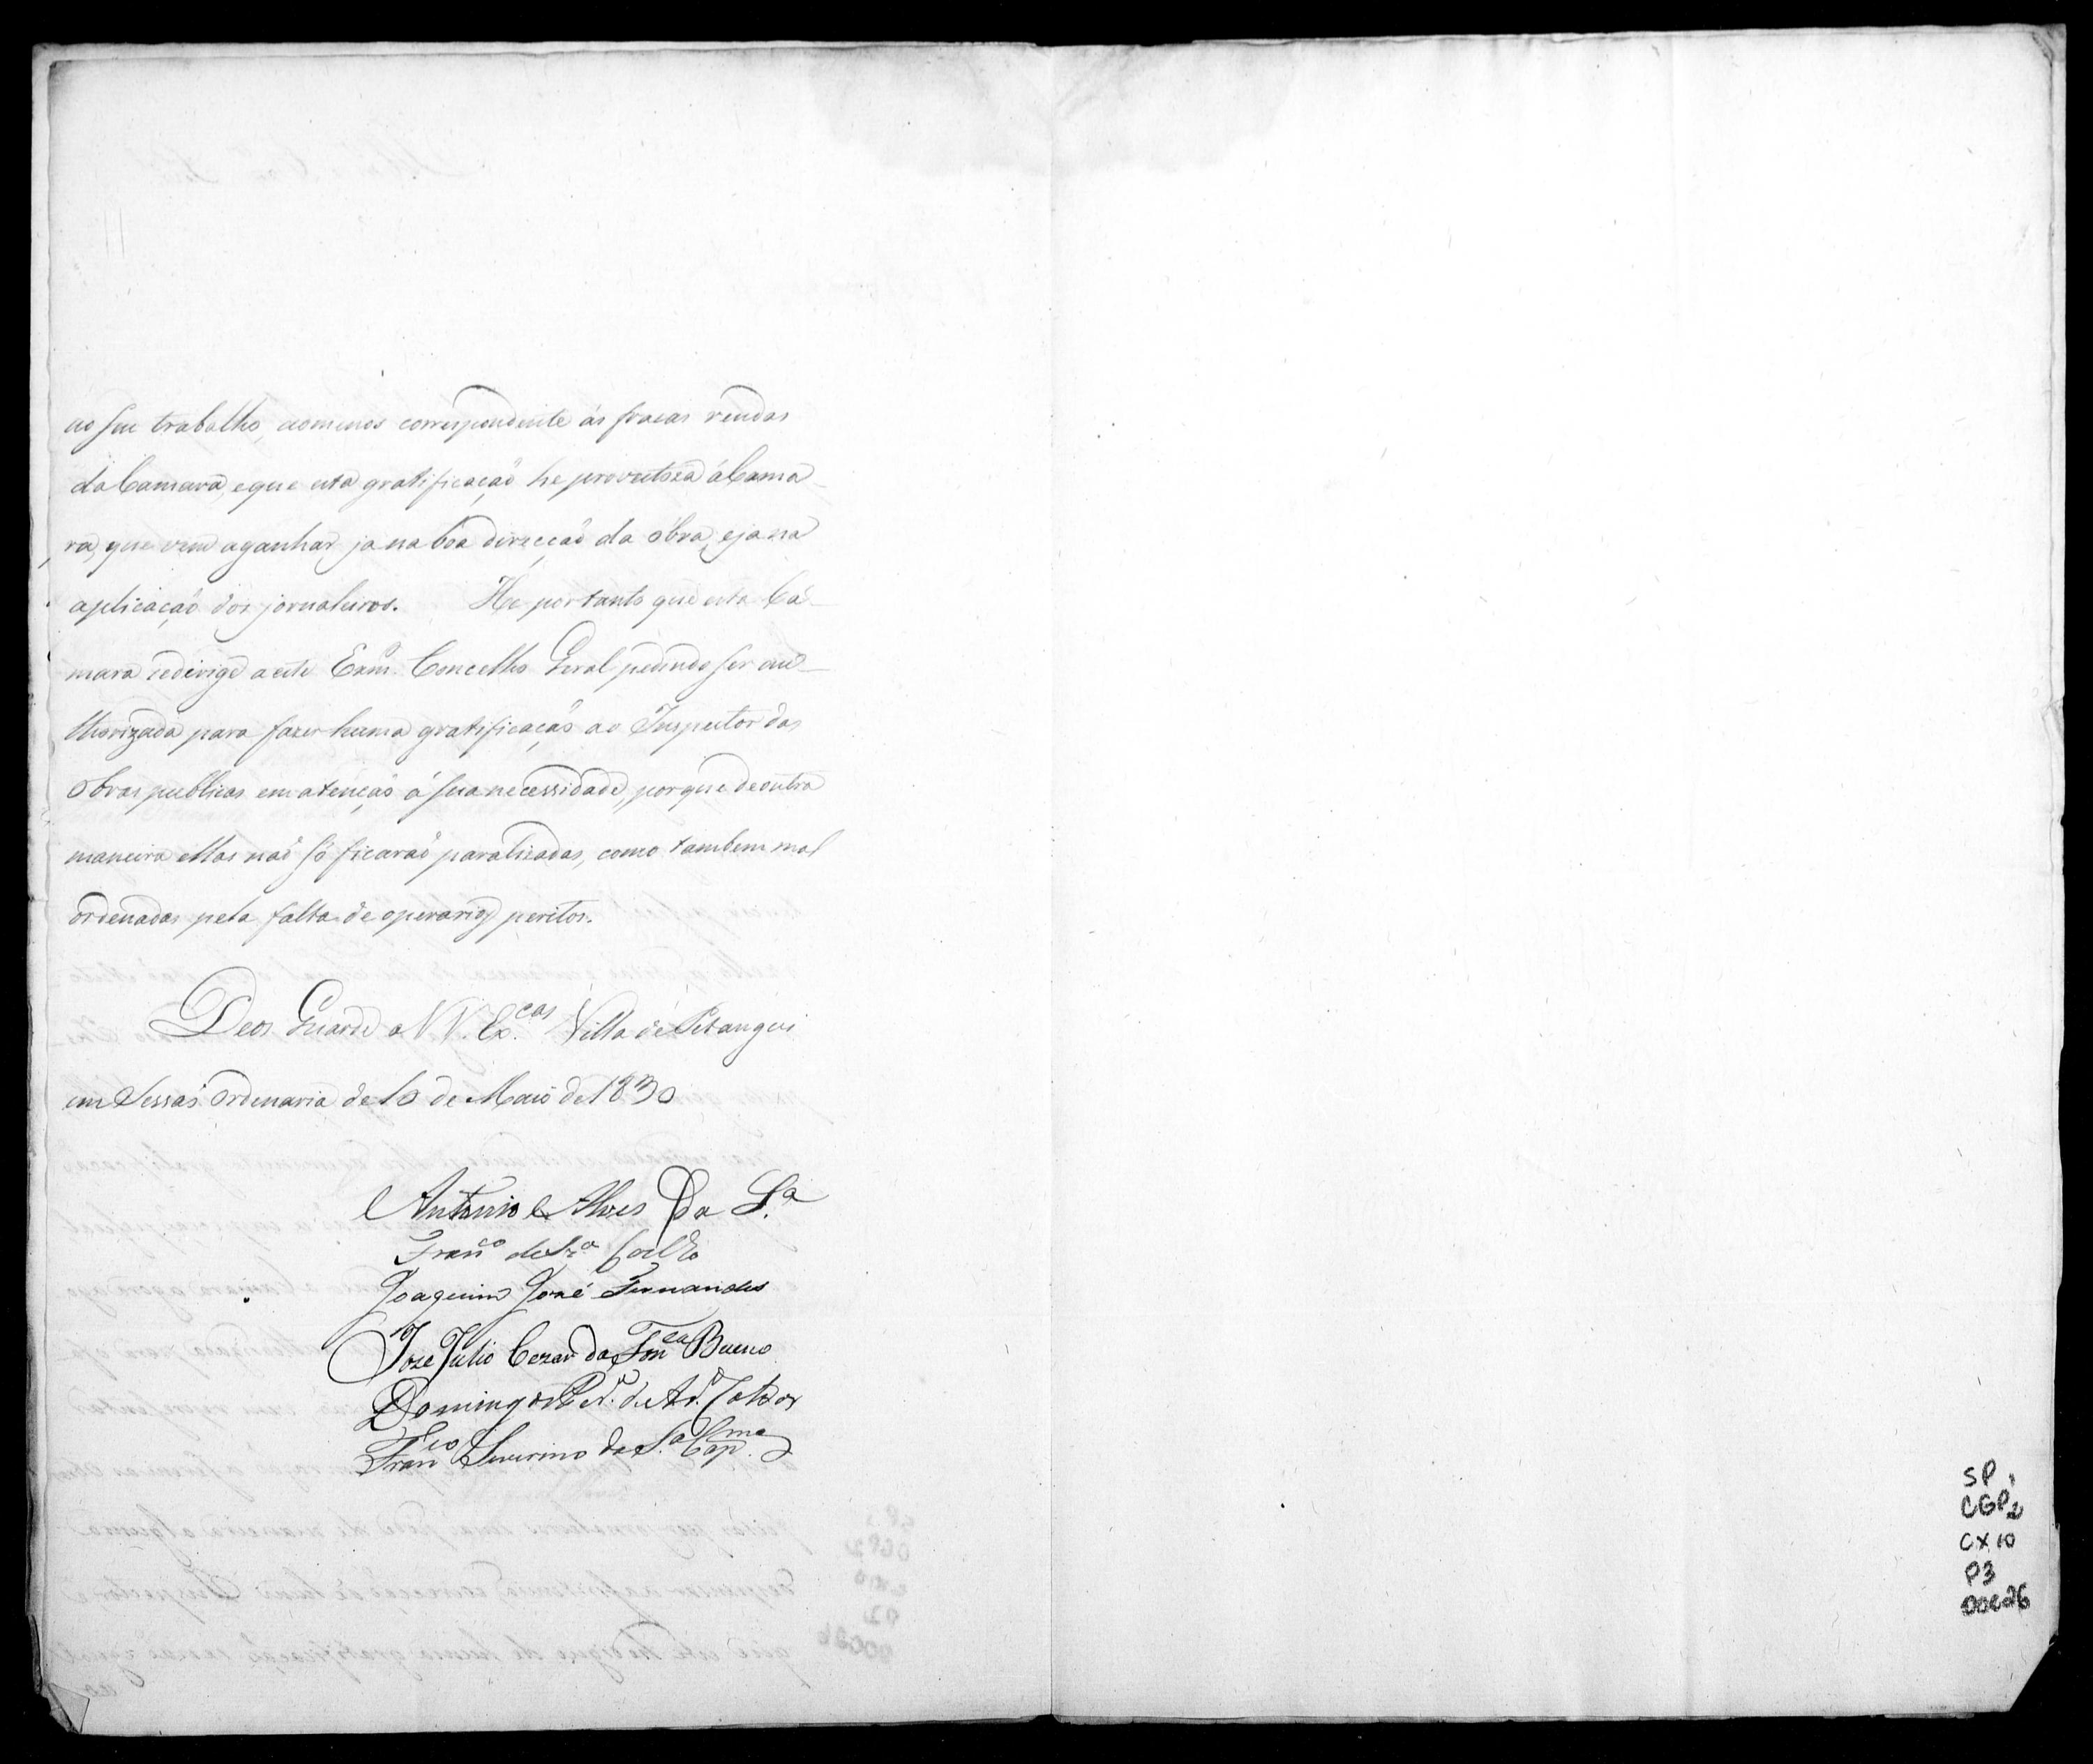 ao seu trabalho, aomenos correspondente ás fracas rendas
da Camara, eque esta gratificação he proveitoza áCama-
ra, que vem aganhar ja na bôa direcção da óbra, eja na
aplicação dos jornaleiros. He portanto que esta Ca-
mara sedirige a este Exm.º Concelho Geral pedindo ser au-
thorizada para fazer huma gratificação ao Inspector das
obras publicas ematenção á sua necessidade, porque deoutra
maneira ellas naõ só ficaraõ paralizadas, como tambem mal
ordenadas pela falta de operarios peritos.
Deos Guarde a VV. Ex.cas Villa de Pitangui
em Sessaõ Ordenaria de 10 de Maio de 1830
Antonio Alves Da S.ª
Fran.co de Sz.ª Coelho
Joaquim José Fernandes
Joze Julio Cezar da Fon.ca Bueno
Domingos de Ad.
Fran.co Severino da S.ª Cap.me
SP 1
CGP2
CX 10
P3
DOC 26